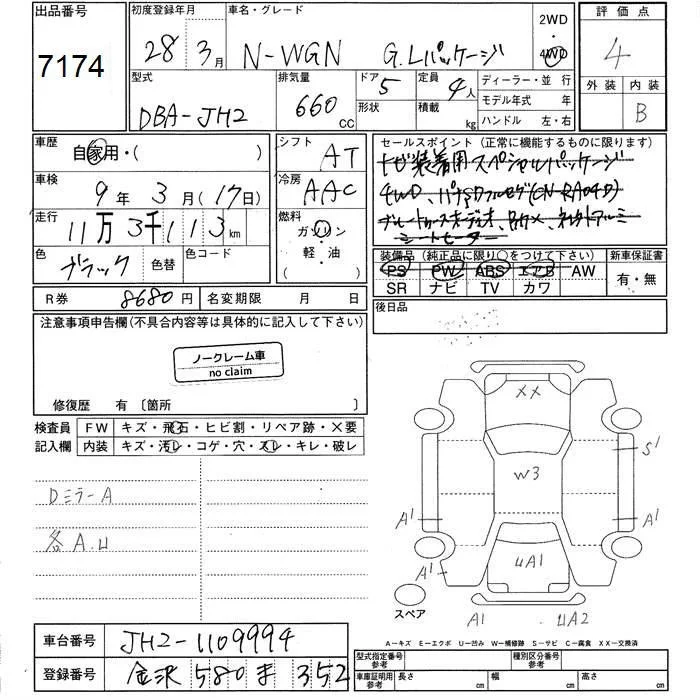 出品番号 7174
初度登録年月 28年 3月
車名・グレード N-WGN G.Lパッケージ
2WD
4WD
評価点 4
外装 内装 B
型式 DBA-JH2
排気量 660 CC
ドア 5
形状
定員 4人
積載 kg
ディーラー・並 行
モデル年式 年
ハンドル 左・右
車歴 自家用・( )
車検 9年 3月(17日)
走行 11万3千113km
色 ブラック 色替
色コード
シフト AT
冷房 AAC
燃料 ガソリン
軽・油
セールスポイント(正常に機能するものに限ります)
ナビ装着用スペシャルパッケージ
4WD、
シートヒーター
装備品(純正品に限り○をつけて下さい)
PS PW ABS エアB AW
SR ナビ TV カワ
新車保証書
有・無
R券 8680円
名変期限 月 日
後日品
注意事項申告欄(不具合内容等は具体的に記入して下さい)
ノークレーム車
no claim
修復歴 有〔箇所 〕
検査員記入欄
FW キズ・飛石・ヒビ割・リペア跡・X要
内装 キズ・汚レ・コゲ・穴・スレ・キレ・破レ
Dミラー A
各 A.U
XX
S1
W3
A1
A1
UA1
A1
スペア
A1
UA2
A-キズ E-エクボ U-凹み W-補修跡 S-サビ C-腐食 XX-交換済
車台番号 JH2-1109994
登録番号 金沢 580 ま 352
型式指定番号 参考
種別区分番号 参考
車庫証明用 参考 長さ cm 幅 cm 高さ cm